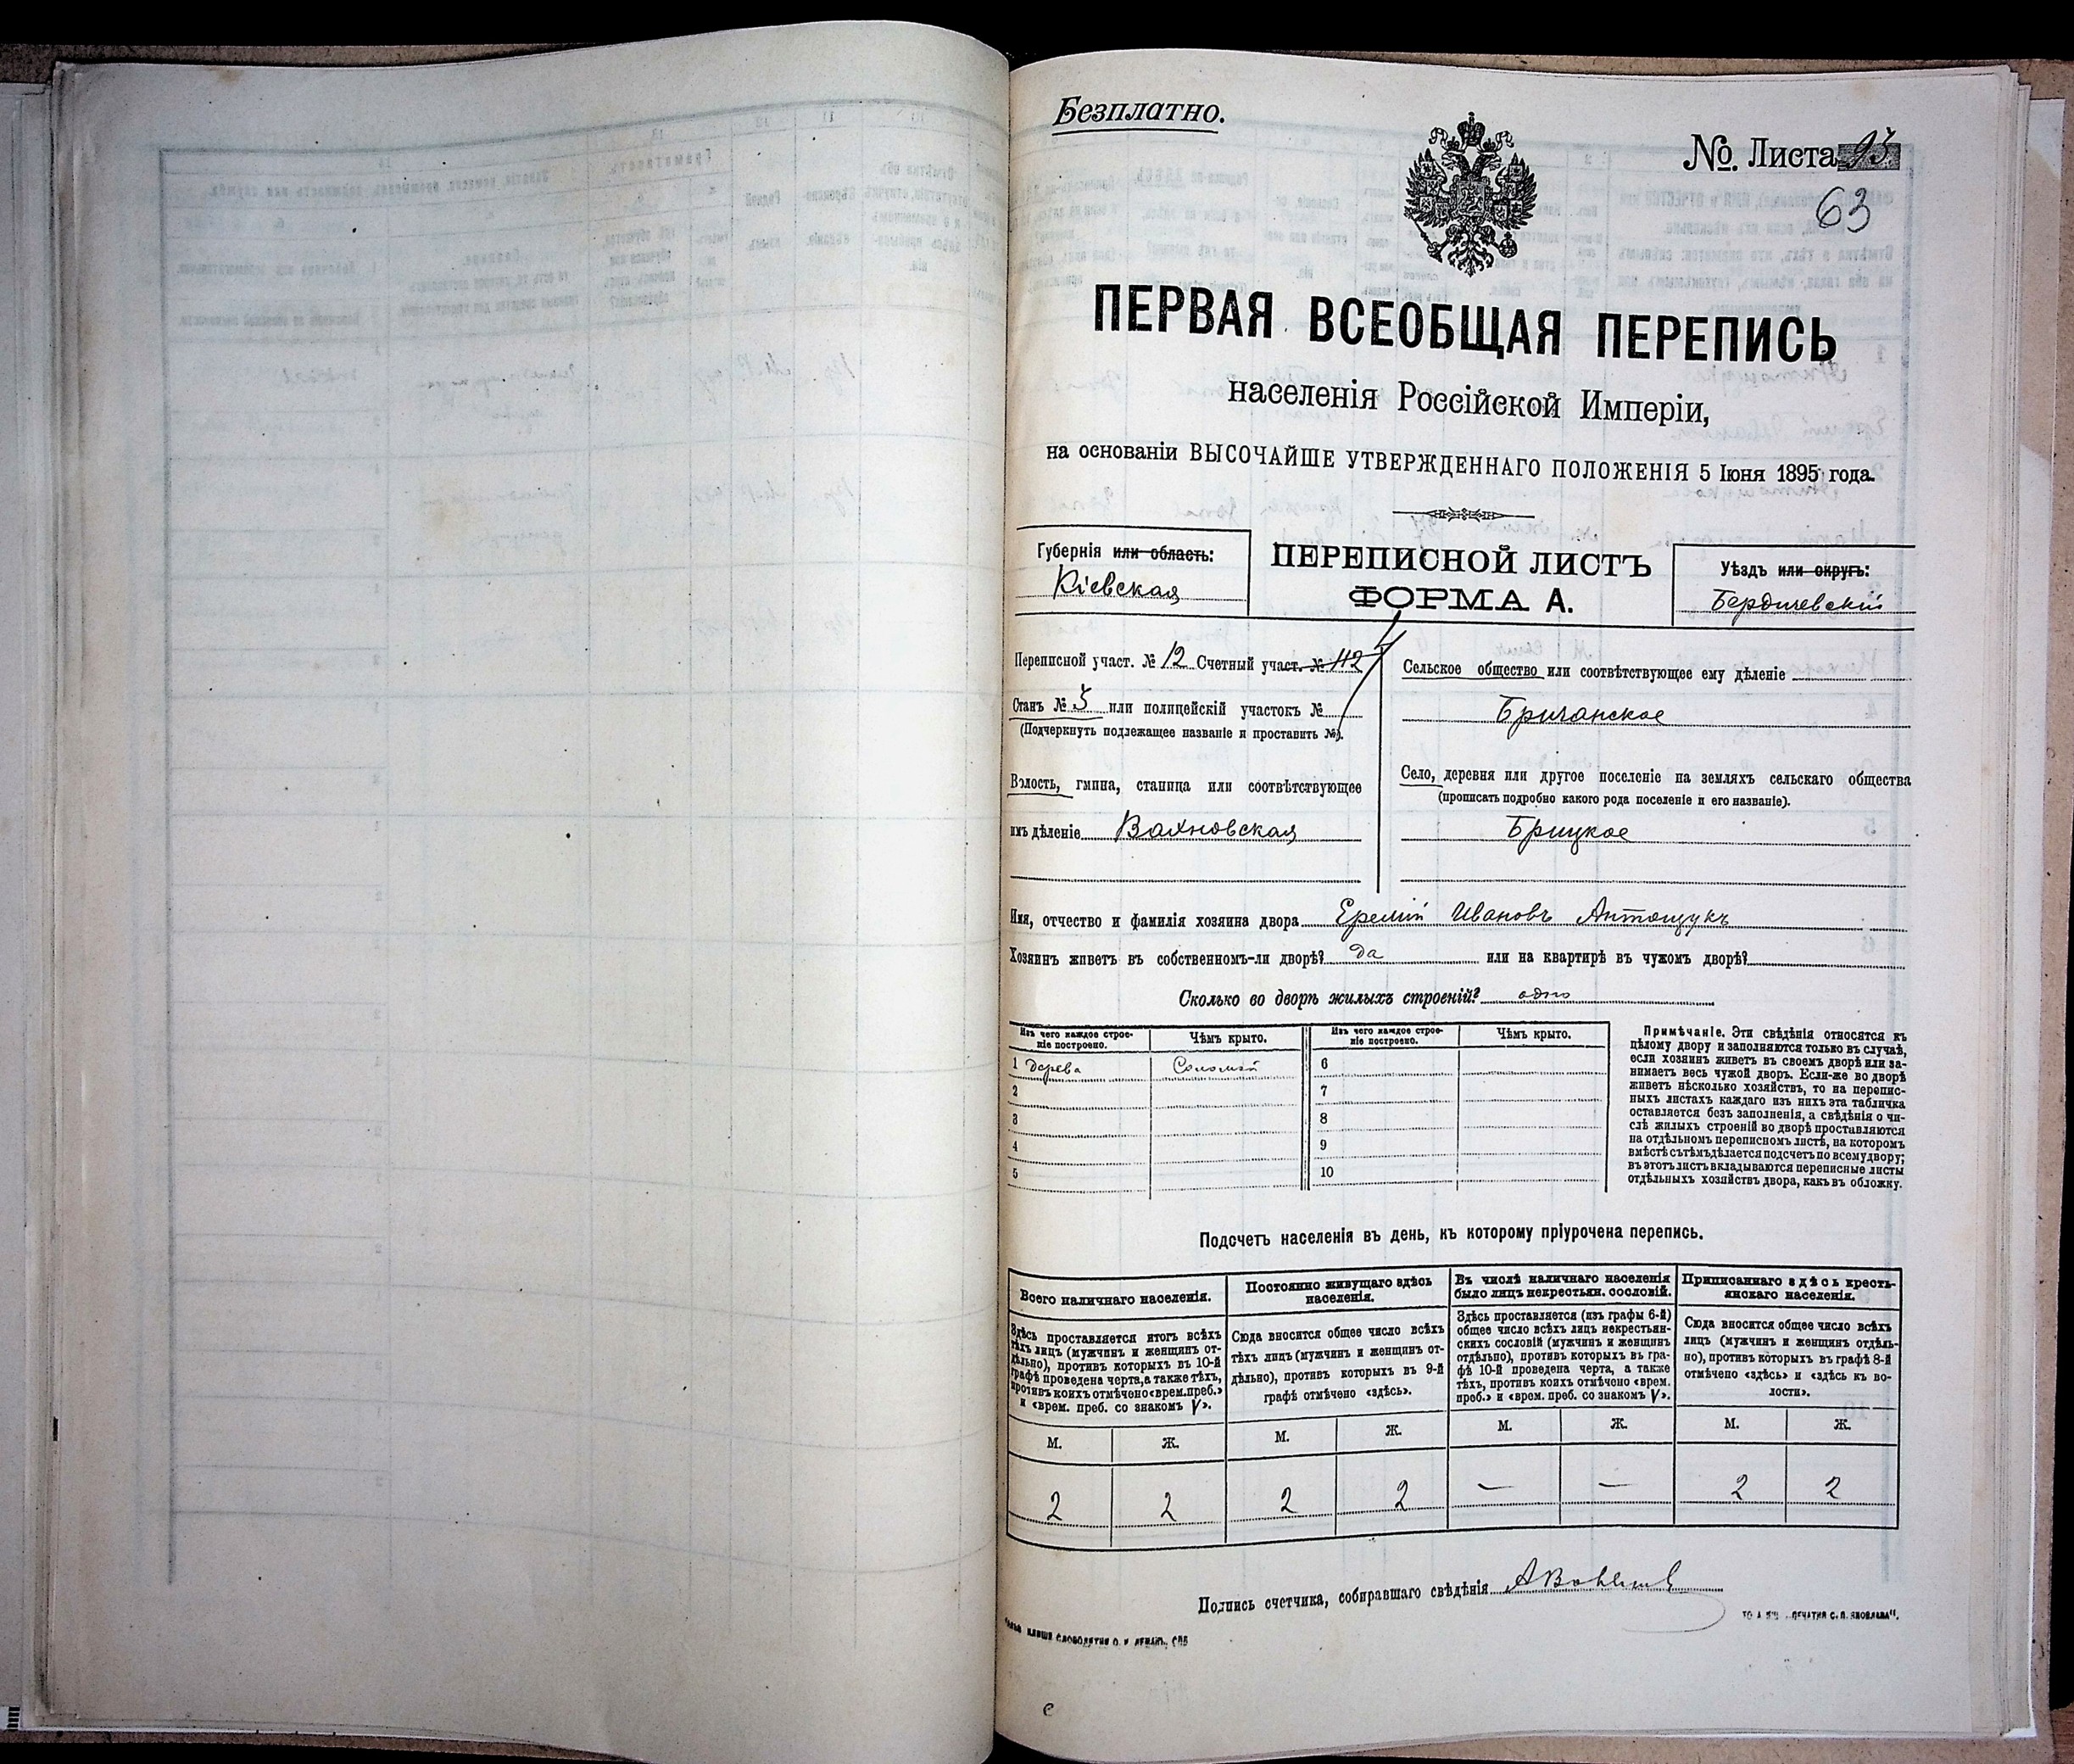 Безплатно.
№ Листа 93
63
ПЕРВАЯ ВСЕОБЩАЯ ПЕРЕПИСЬ
населенія Россійской Имперіи,
на основаніи ВЫСОЧАЙШЕ УТВЕРЖДЕННАГО ПОЛОЖЕНІЯ 5 Іюня 1895 года.
Губернія или область:
Кіевская
ПЕРЕПИСНОЙ ЛИСТЪ
ФОРМА А.
Уѣздъ или округъ:
Бердичевскій
Переписной участ. № 12 Счетный участ. № 112
Станъ № 5 или полицейскій участокъ №
(Подчеркнуть подлежащее названіе и проставить №).
Волость, гмина, станица или соотвѣтствующее
имъ дѣленіе Вахновская
Сельское общество или соотвѣтствующее ему дѣленіе
Брицанское
Село, деревня или другое поселеніе на земляхъ сельскаго общества
(прописать подробно какого рода поселеніе и его названіе).
Брицкое
Имя, отчество и фамилія хозяина двора Еремій Ивановъ Антощукъ
Хозяинъ живетъ въ собственномъ-ли дворѣ? да или на квартирѣ въ чужомъ дворѣ?
Сколько во дворѣ жилыхъ строеній? одно
Изъ чего каждое строе-
ніе построено.
Чѣмъ крыто.
Изъ чего каждое строе-
ніе построено.
Чѣмъ крыто.
1 дерева Соломой 6
2 7
3 8
4 9
5 10
Примѣчаніе. Эти свѣдѣнія относятся къ
цѣлому двору и заполняются только въ случаѣ,
если хозяинъ живетъ въ своемъ дворѣ или за-
нимаетъ весь чужой дворъ. Если-же во дворѣ
живетъ нѣсколько хозяйствъ, то на перепис-
ныхъ листахъ каждаго изъ нихъ эта табличка
оставляется безъ заполненія, а свѣдѣнія о чи-
слѣ жилыхъ строеній во дворѣ проставляются
на отдѣльномъ переписномъ листѣ, на которомъ
вмѣстѣ съ тѣмъ дѣлается подсчетъ по всему двору;
въ этотъ листъ вкладываются переписные листы
отдѣльныхъ хозяйствъ двора, какъ въ обложку.
Подсчетъ населенія въ день, къ которому пріурочена перепись.
Всего наличнаго населенія.
Здѣсь проставляется итогъ всѣхъ
тѣхъ лицъ (мужчинъ и женщинъ от-
дѣльно), противъ которыхъ въ 10-й
графѣ проведена черта, а также тѣхъ,
противъ коихъ отмѣчено «врем. преб.»
и «врем. преб. со знакомъ V».
Постоянно живущаго здѣсь
населенія.
Сюда вносится общее число всѣхъ
тѣхъ лицъ (мужчинъ и женщинъ от-
дѣльно), противъ которыхъ въ 9-й
графѣ отмѣчено «здѣсь».
Въ числѣ наличнаго населенія
было лицъ некрестьян. сословій.
Здѣсь проставляется (изъ графы 6-й)
общее число всѣхъ лицъ некрестьян-
скихъ сословій (мужчинъ и женщинъ
отдѣльно), противъ которыхъ въ гра-
фѣ 10-й проведена черта, а также
тѣхъ, противъ коихъ отмѣчено «врем.
преб.» и «врем. преб. со знакомъ V».
Приписаннаго здѣсь кресть-
янскаго населенія.
Сюда вносится общее число всѣхъ
лицъ (мужчинъ и женщинъ отдѣль-
но), противъ которыхъ въ графѣ 8-й
отмѣчено «здѣсь» и «здѣсь къ во-
лости».
М. Ж. М. Ж. М. Ж. М. Ж.
2 2 2 2 — — 2 2
Подпись счетчика, собиравшаго свѣдѣнія
с